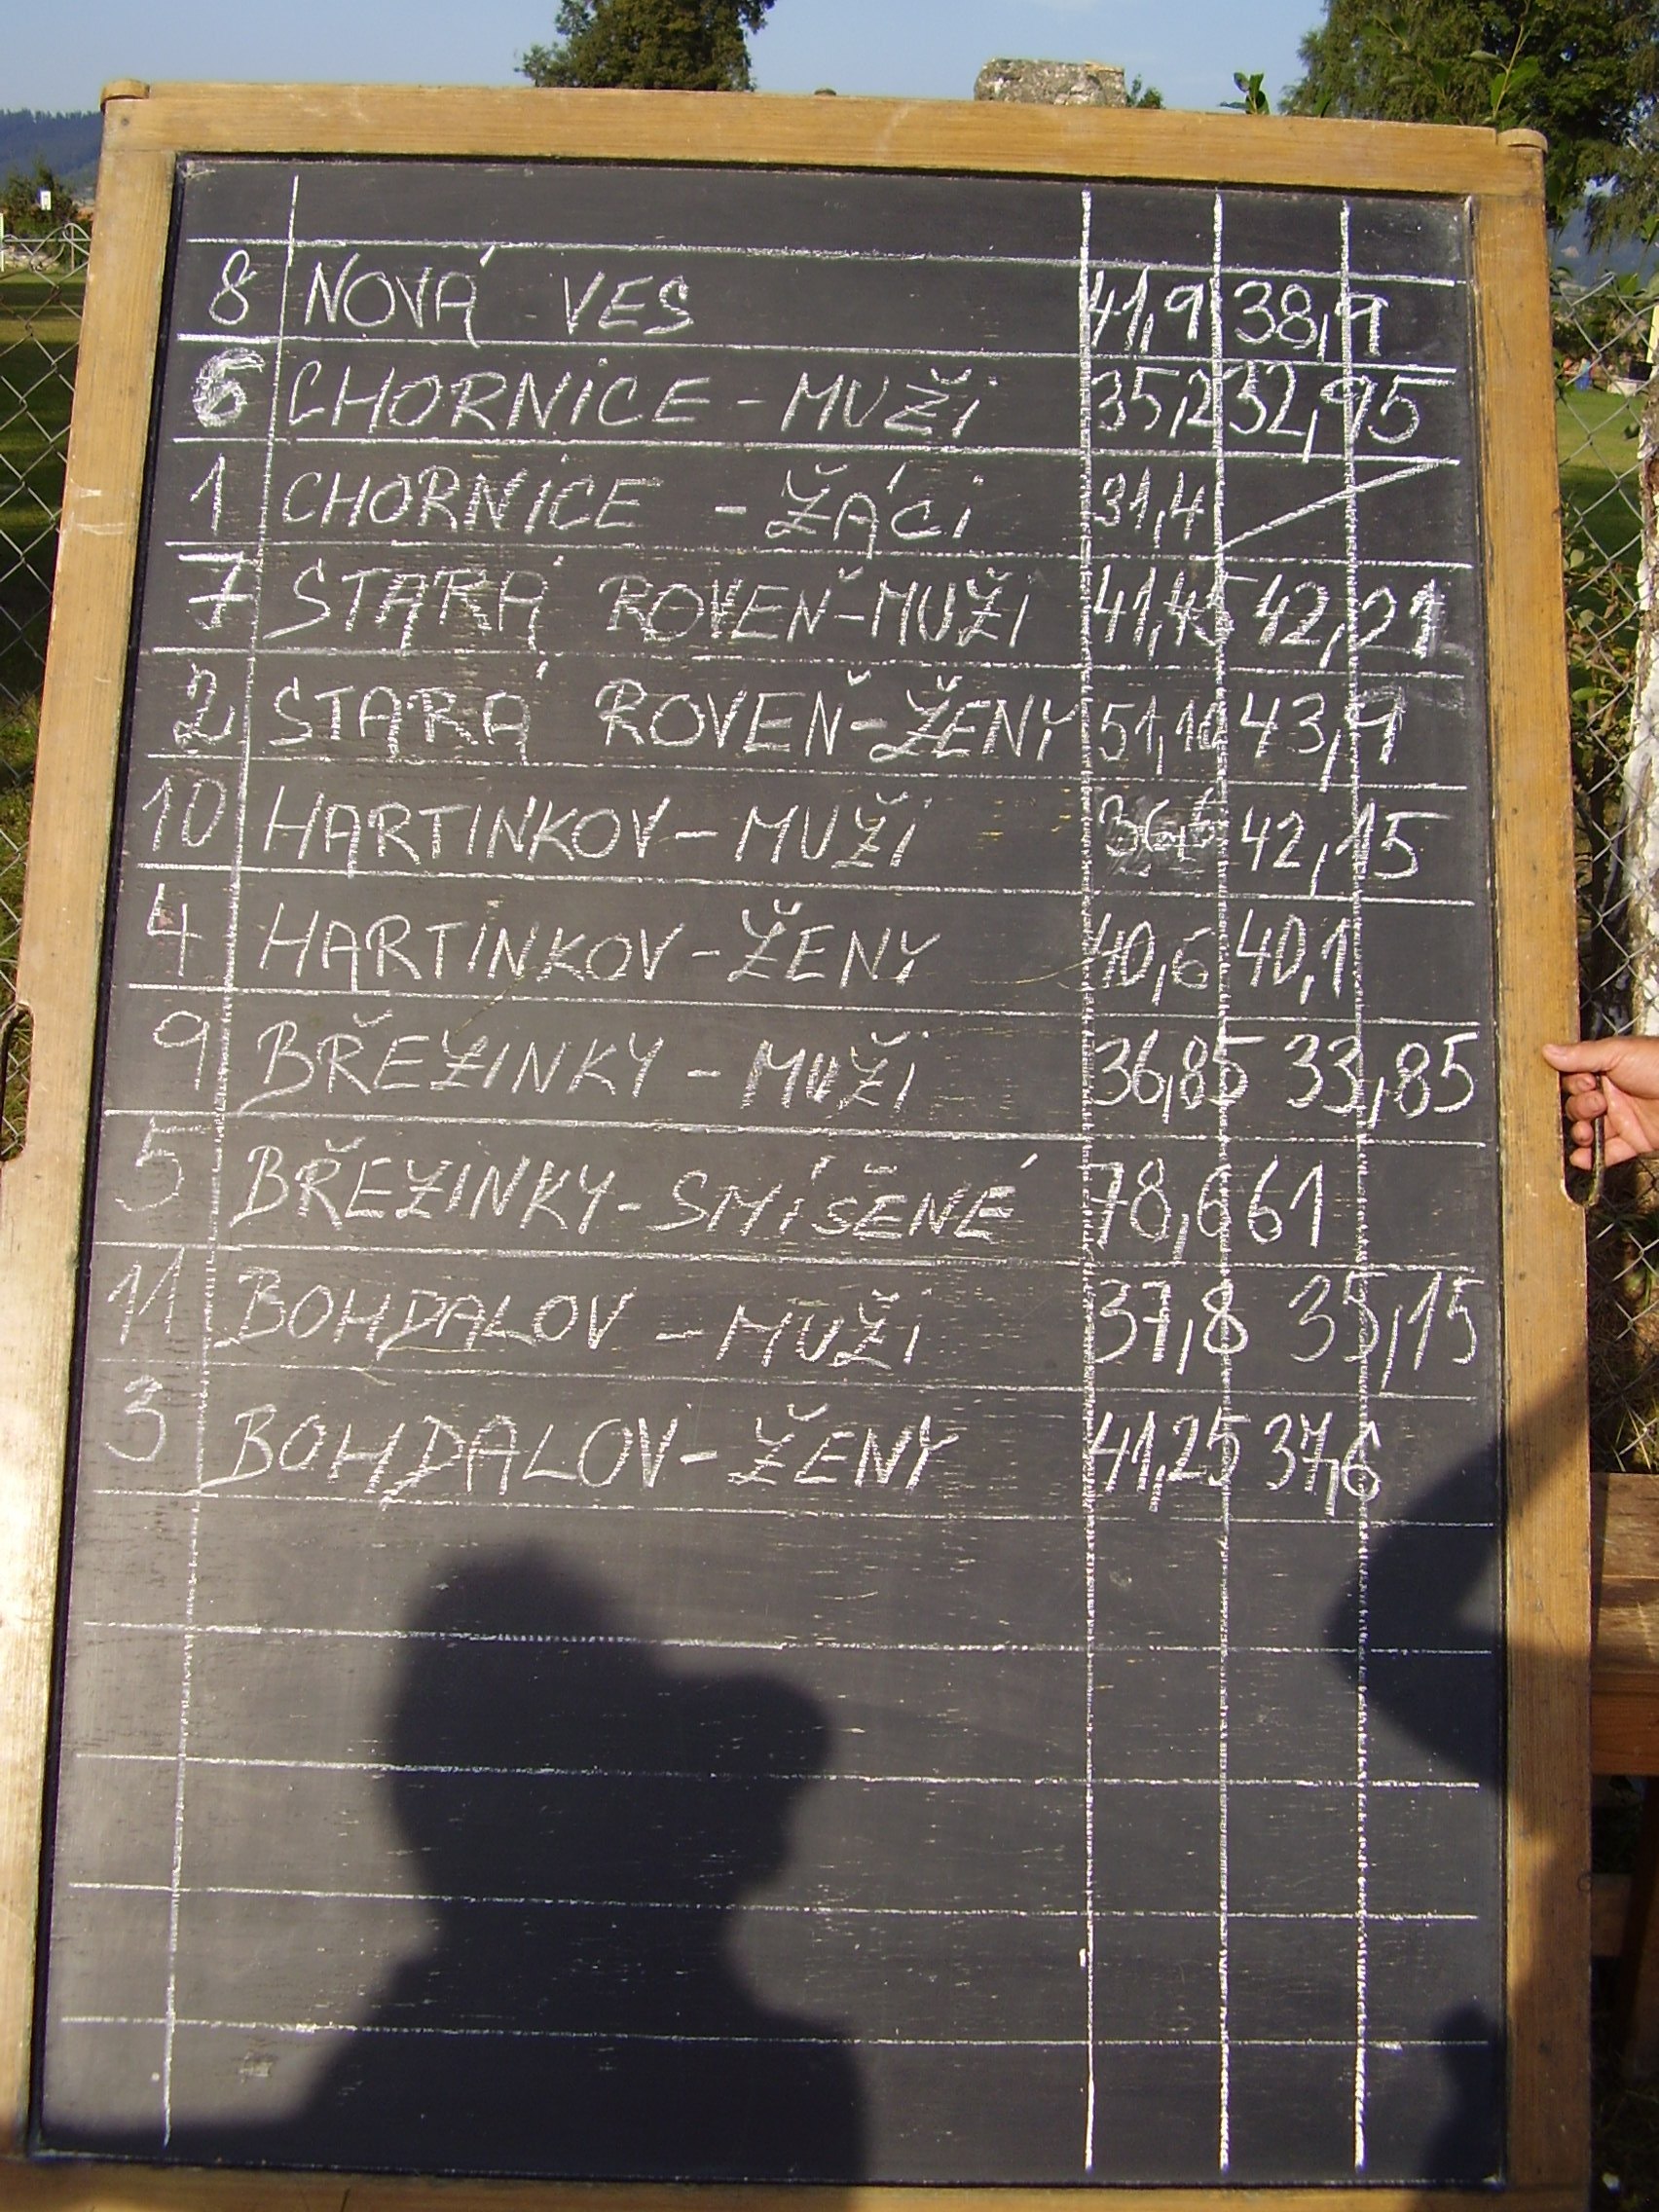 8 NOVÁ VES 41,9 38,9
6 CHORNICE - MUŽI 35,2 32,95
1 CHORNICE - ŽÁCI 31,4
7 STARÁ ROVEŇ-MUŽI 41,45 42,21
2 STARÁ ROVEŇ-ŽENY 51,10 43,9
10 HARTINKOV - MUŽI 42,15
4 HARTINKOV - ŽENY 40,6 40,1
9 BŘEZINKY - MUŽI 36,85 33,85
5 BŘEZINKY - SMÍŠENÉ 78,6 61
11 BOHDALOV - MUŽI 37,8 35,15
3 BOHDALOV - ŽENY 41,25 37,6